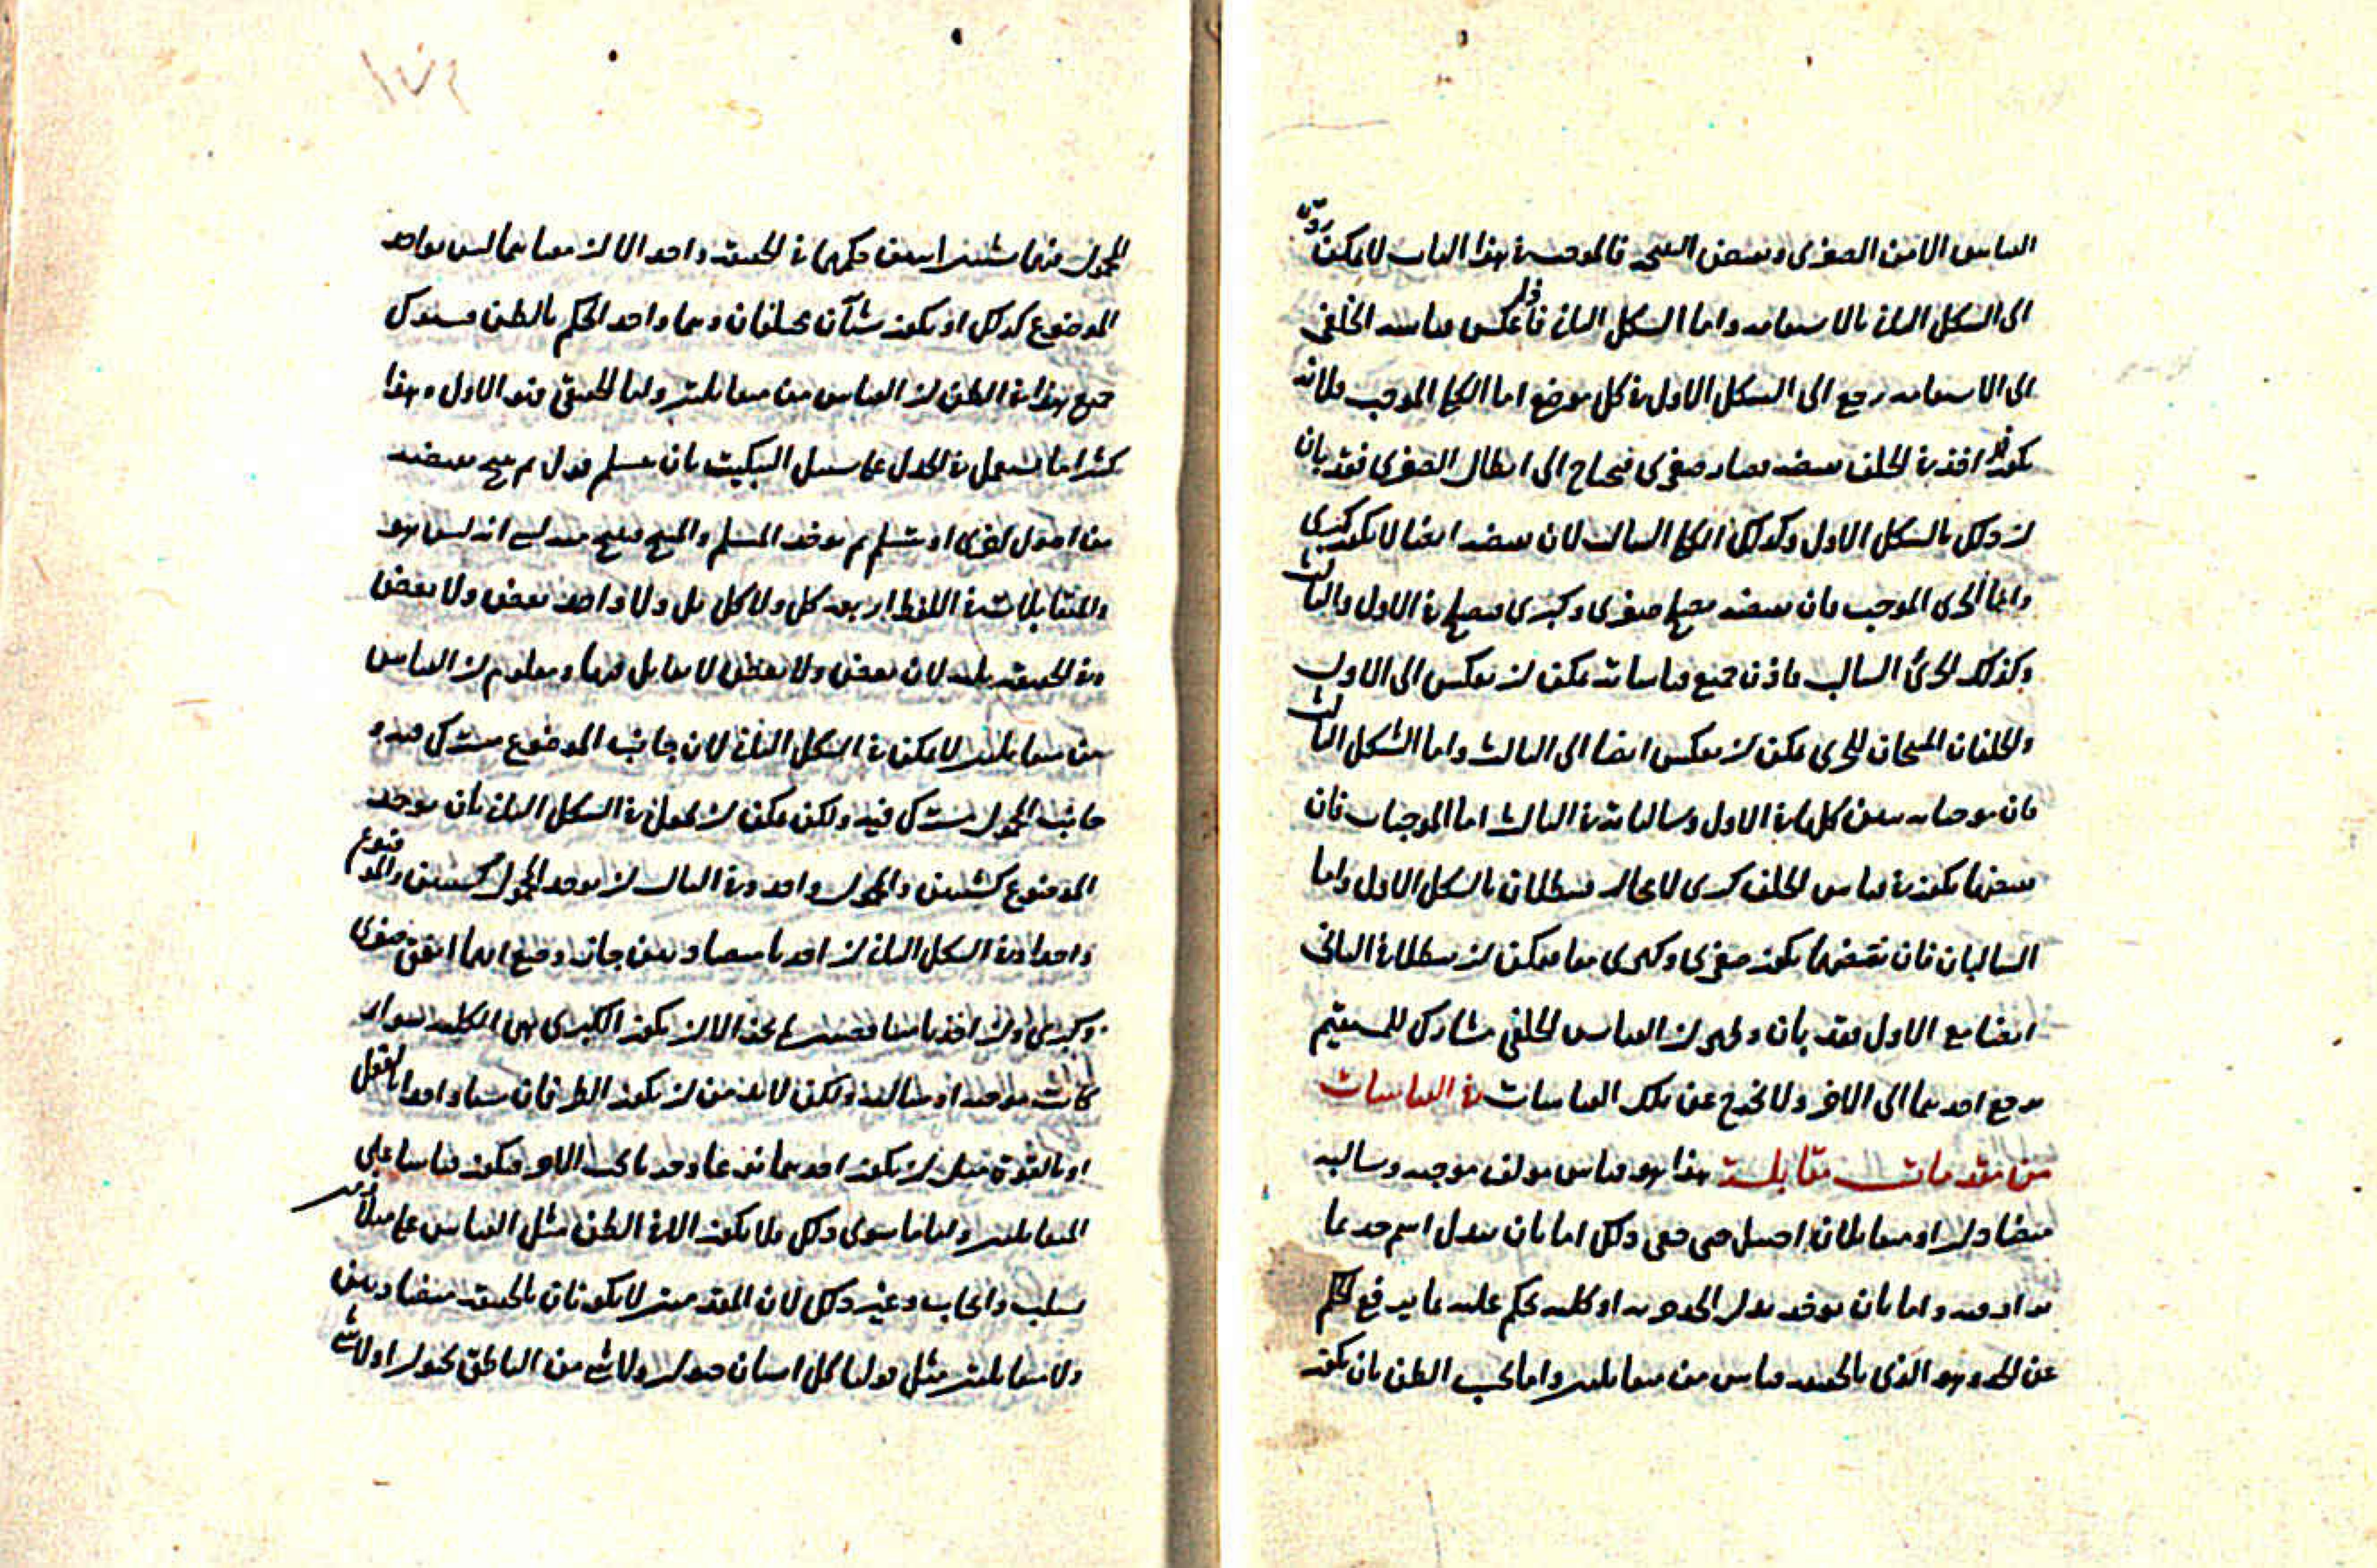 القياس الا من الصغرى ونقيض النتيجة فالموجب في هذا الباب لا يمكن رده
الى الشكل الثاني بالاستقامة واما الشكل الثاني فاذا عكس قياسه الخلفي
الى الاستقامة رجع الى الشكل الاول في كل موضع اما الكلي الموجب فلانه
يكون قد اخذ في الخلف نقيضه فصار صغرى فيحتاج الى ابطال الصغرى فقد بان
ان ذلك بالشكل الاول وكذلك الكلي السالب لان نقيضه ايضا لا يكون كبرى
واما الجزئي الموجب فان نقيضه يصلح صغرى وكبرى فيصلح في الاول والثالث
وكذلك الجزئي السالب فاذن جميع قياساته يمكن ان يعكس الى الاول
والخلفان المنتجان للجزئي يمكن ان يعكس ايضا الى الثالث واما الشكل الثالث
فان موجباته يتبين كلها في الاول وسالباته في الثاني اما الموجبات فان
نقيضها يكون في قياس الخلف كبرى لا محالة فيبطلان بالشكل الاول واما
السالبان فان نقيضهما يكون صغرى وكبرى معا فيمكن ان يبطلا في الثاني
ايضا مع الاول فقد بان وظهر ان القياس الخلفي مشارك للمستقيم
يرجع احدهما الى الاخر ولا يخرج عن تلك القياسات في القياسات
من مقدمات متقابلة هذا هو قياس مولف موجبه وسالبه
متضادان او متقابلان احتيل حتى خفي ذلك اما بان يبدل اسم حد بما
يرادفه واما بان يوخذ بدل الحد جزيه او كليه يحكم عليه بما يرفع الحكم
عن الحد وهو الذي بالحقيقة قياس من متقابلين واما بحسب الظن بان يكون
المحمول فيهما شيئين اتفق حكمهما في الحقيقة واحد الا انهما معا بما ليس بواحد
الموضوع كذلك او يكون شيآن مختلفان وهما واحد الحكم بالظن فيتوكل
جميع هذا في الظن ان القياس من متقابلين واما الحقيقي فهو الاول وهذا
كثيرا ما يستعمل في الجدل على سبيل التبكيت بان يتسلم قول ثم ينتج نقيضه
من اصول اخرى او يتسلم ثم يوخذ المسلم والمنتج فينتج منه ان الشي ليس هو
والمتقابلات في اللفظ اربعة كل ولا كل بل ولا واحد بعض ولا بعض
وفي الحقيقة ثلثه لان بعض ولا بعض لا تقابل فيها ومعلوم ان القياس
من متقابلين لا يمكن في الشكل الاول لان جانب الموضوع مشترك فيه و
جانب المحمول مشترك فيه ولكن يمكن ان يحول في الشكل الثاني بان يوخذ
الموضوع كشيئين والمحمول واحد وفي الثالث ان يوخذ المحمول كشيئين والموضوع
واحدا وفي الشكل الثاني ان اخذتا متضادتين جاز وضع ايهما اتفق صغرى
وكبرى وان اخذتا متناقضتين لم يجز الا ان يكون الكبرى هي الكلية سواء
كانت موجبة او سالبة ولكن لا بد من ان يكون الطرفان شيئا واحدا بالفعل
او بالقوة مثل ان يكون احدهما نوعا وجزءا تحت الاخر فيكون قياسا على
المتقابلين واما ما سوى ذلك فلا يكون الا في الظن مثل القياس على متقابلين
بسلب وايجاب وغير ذلك لان المقدمتين لا يكونان بالحقيقة متضادتين
ولا متقابلتين مثل قولنا كل انسان حيوان ولا شي من الناطق بحيوان او لا شي